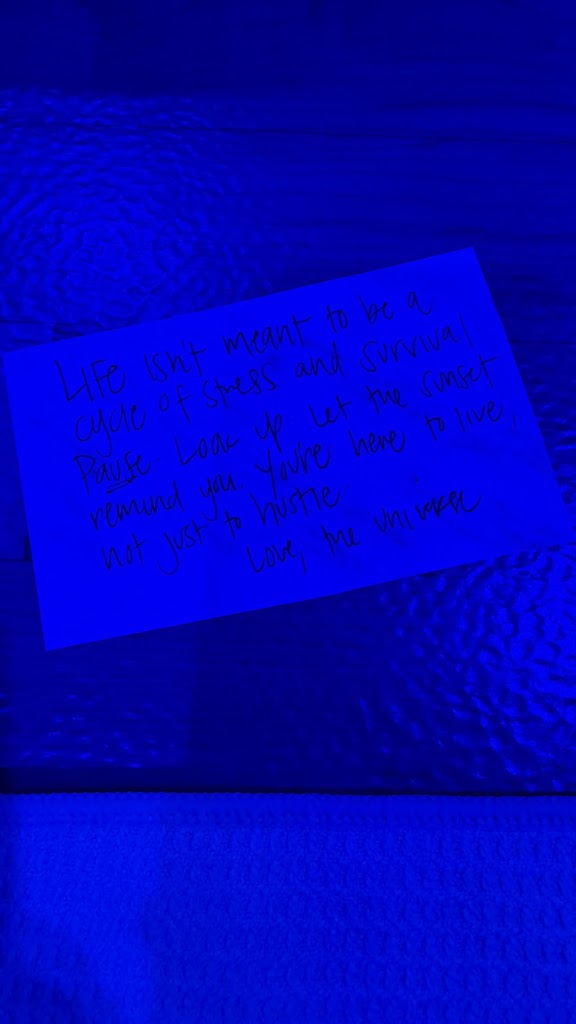 LIFE isn't meant to be a
cycle of stress and survival
Pause. Look up. Let the sunset
remind you. You're here to live,
not just to hustle.
Love, the universe